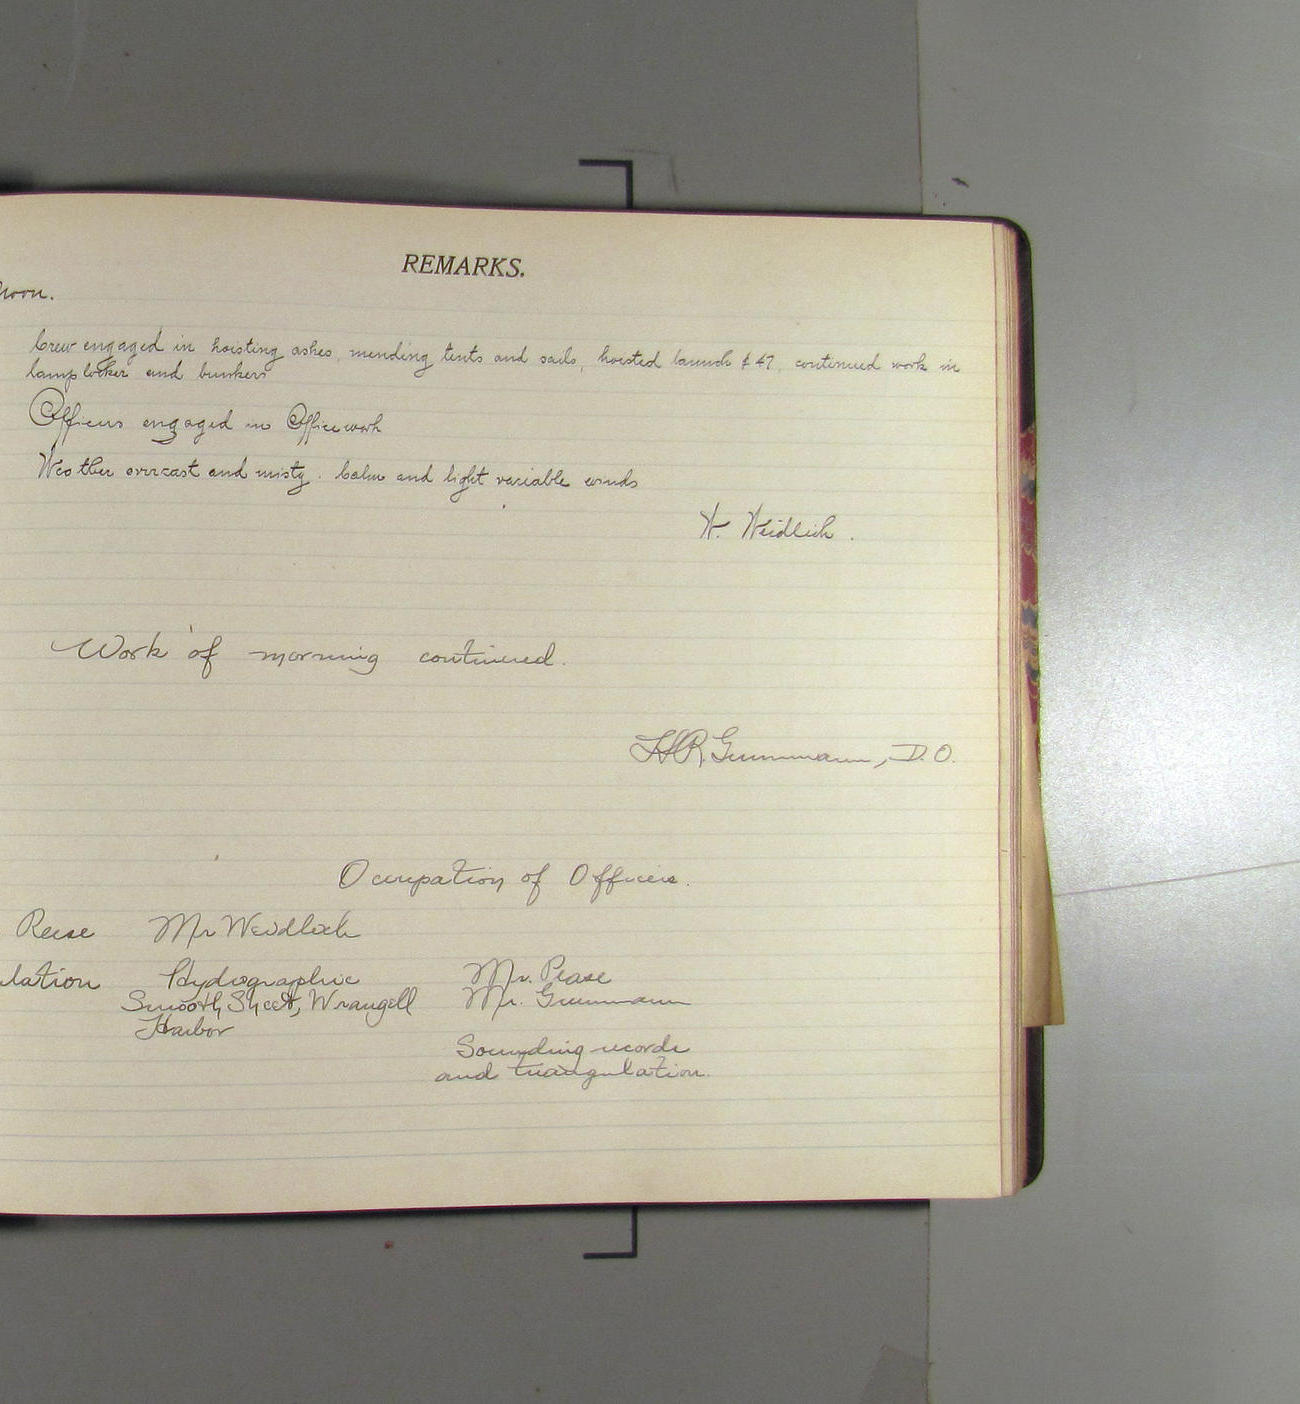 REMARKS.
noon.
Crew engaged in hoisting ashes, mending tents and sails, hoisted launch # 47, continued work in
lamp locker and bunkers
Officers engaged in Office work
Weather overcast and misty. Calm and light variable winds
W. Weidlich.
Work of morning continued.
HR Grummann, D.O.
Occupation of Officers.
Reese Mr Weidlich
lation Hydrographic Mr. Pease
Smooth Sheet, Wrangell Mr. Grummann
Harbor
Sounding records
and triangulation.